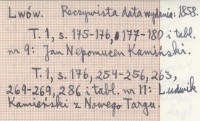 Lwów. Rzeczywista data wydania: 1858.
T. 1, s. 175-176, 177-180 i tabl.
nr 9: Jan Nepomucen Kamiński.
T. 1, s. 176, 254-256, 263,
269-269, 286 i tabl. nr 11: Ludwik
Kamieński z Nowego Targu.